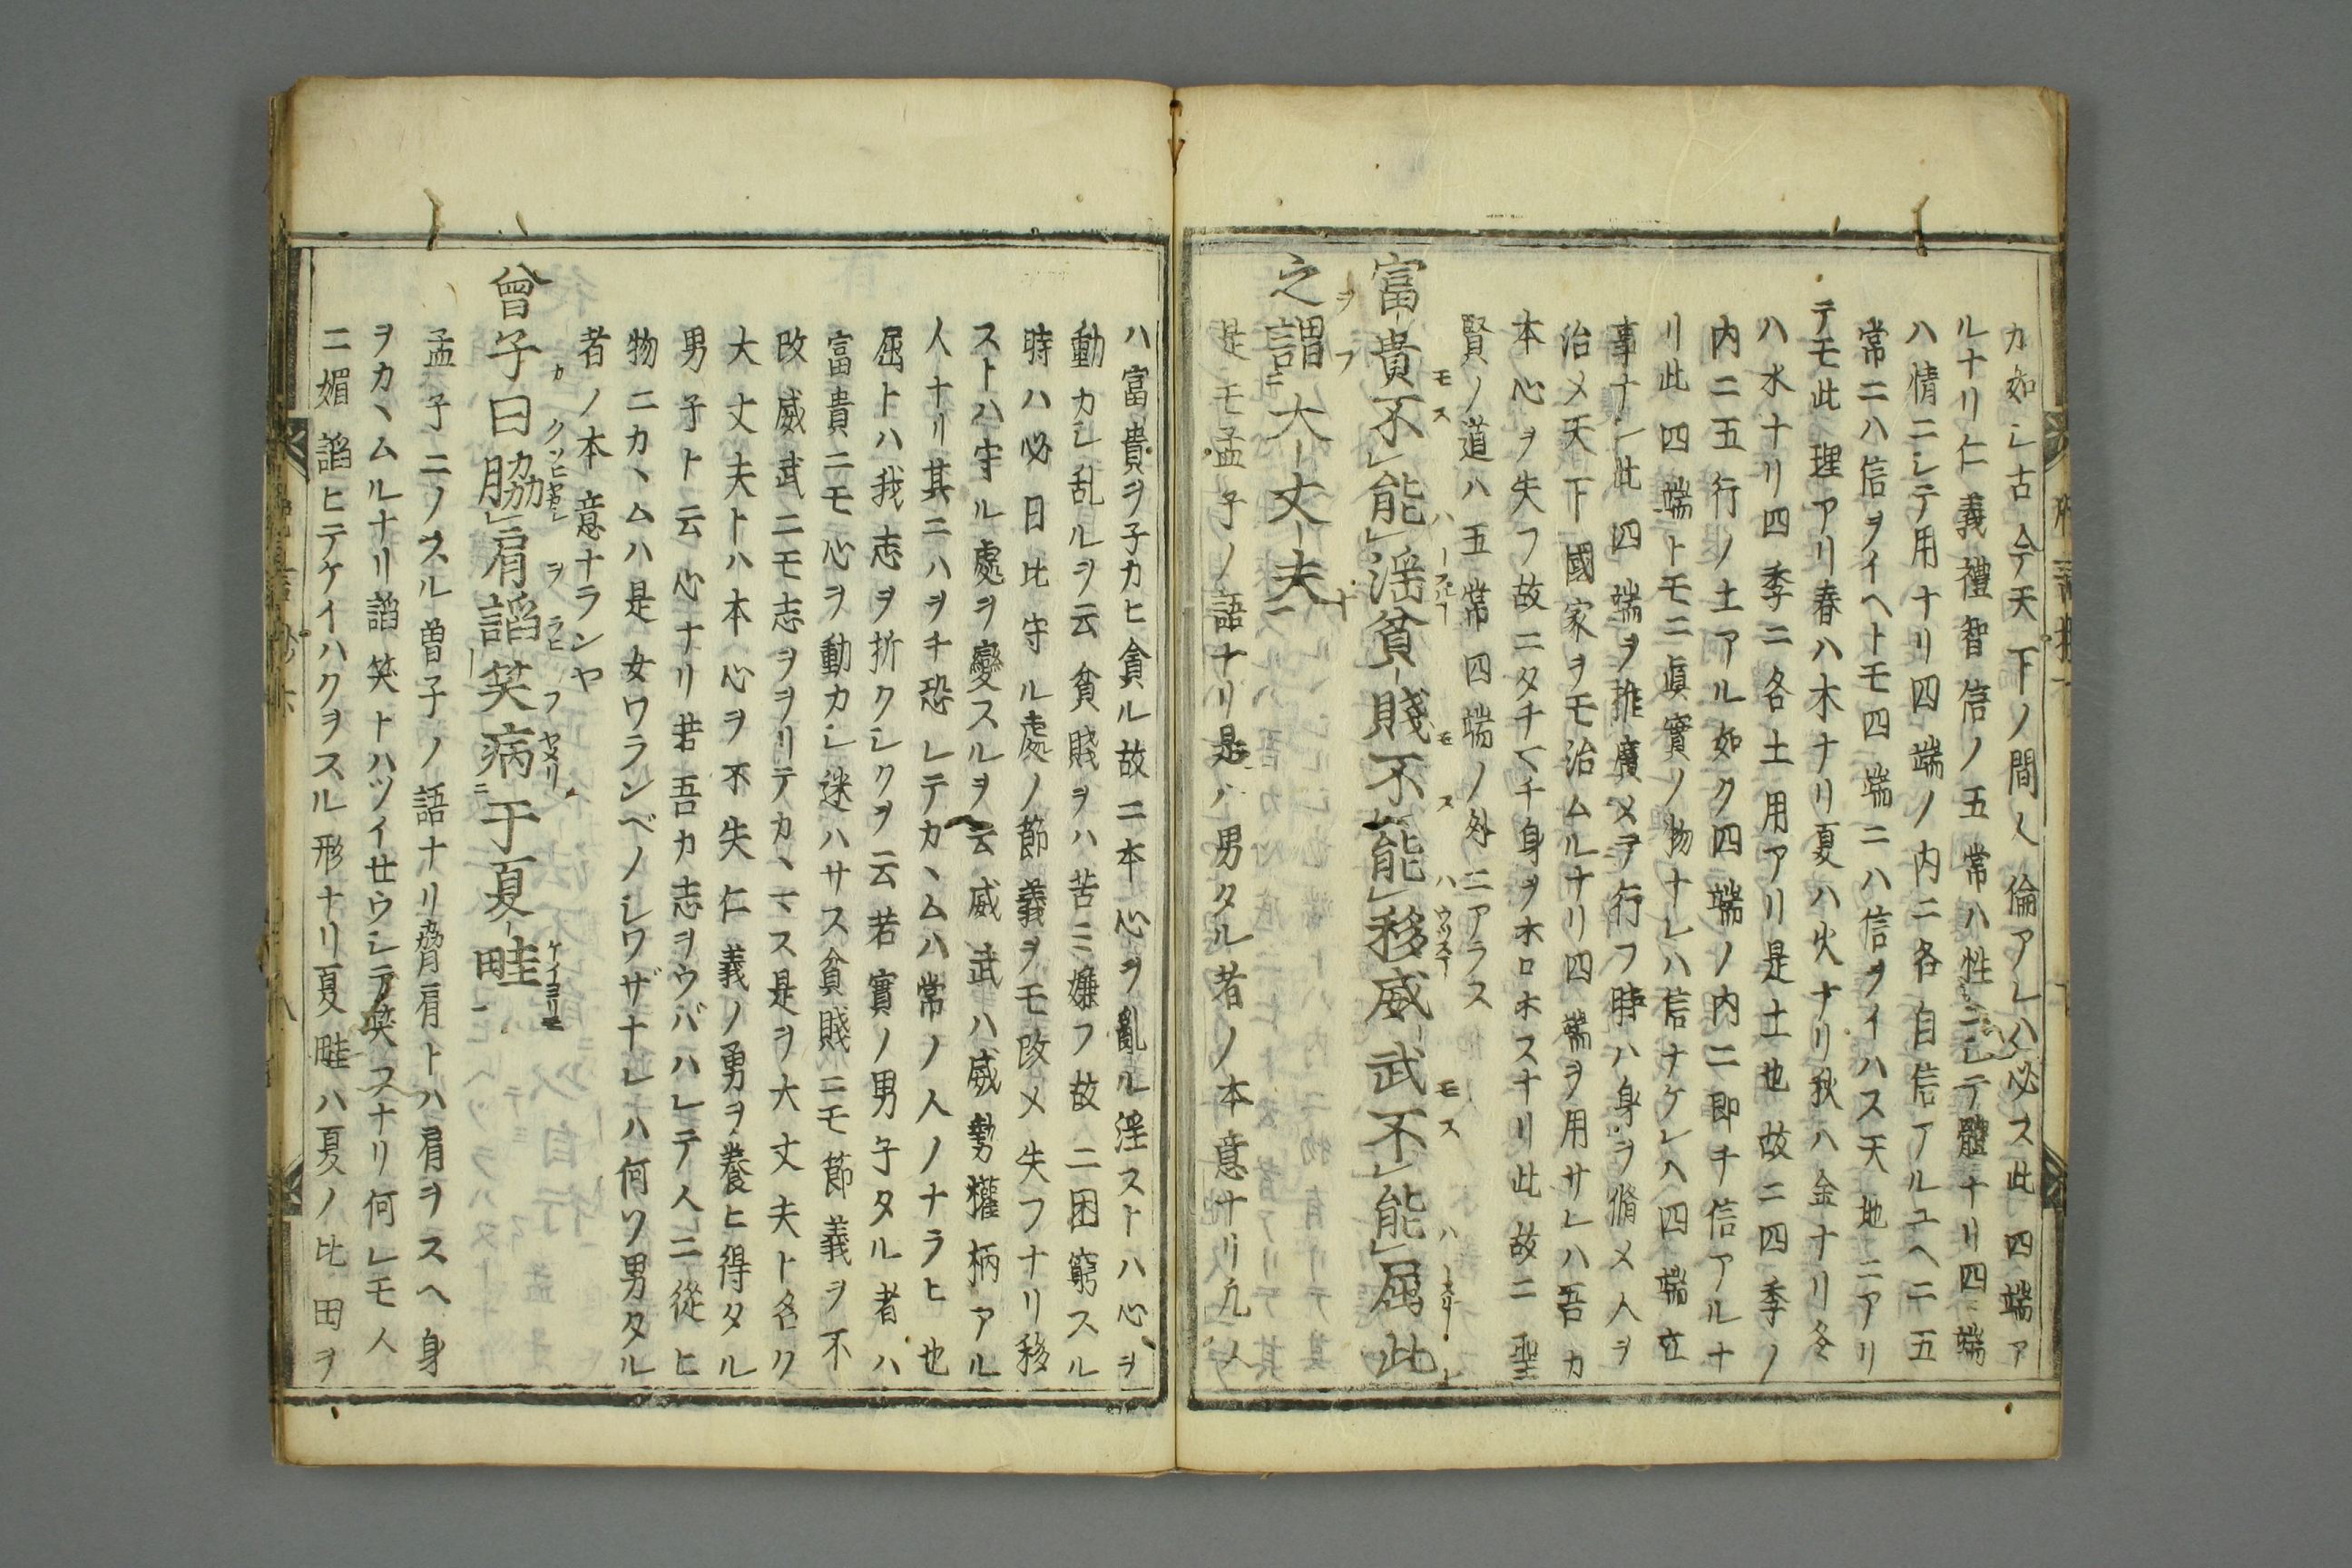 カ如シ古今天下ノ間人倫アレハ必ス此四端ア
ルナリ仁義禮智信ノ五常ハ性ニシテ體ナリ四端
ハ情ニシテ用ナリ四端ノ内ニ各自信アルユヘニ五
常ニハ信ヲイヘトモ四端ニハ信ヲイハス天地ニアリ
テモ此理アリ春ハ木ナリ夏ハ火ナリ秋ハ金ナリ冬
ハ水ナリ四季ニ各土用アリ是土也故ニ四季ノ
内ニ五行ノ土アル如ク四端ノ内ニ即チ信アルナ
リ此四端トモニ眞實ノ物ナレハ信ナケレハ四端立
事ナシ此四端ヲ推廣メテ行フ時ハ身ヲ脩メ人ヲ
治メ天下國家ヲモ治ムルナリ四端ヲ用サレハ吾カ
本心ヲ失フ故ニタチ〱チ身ヲホロホスナリ此故ニ聖
賢ノ道ハ五常四端ノ外ニアラス
富貴不能淫貧賤不能移威武不能屈此
之謂大丈夫
是モ孟子ノ語ナリ是ハ男タル者ノ本意ナリ凡人
ハ富貴ヲ子カヒ貪ル故ニ本心ヲ亂ル淫ストハ心ヲ
動カシ乱ルヲ云貧賤ヲハ苦ミ嫌フ故ニ困窮スル
時ハ必日比守ル處ノ節義ヲモ改メ失フナリ移
ストハ守ル處ヲ變スルヲ云威武ハ威勢權柄アル
人ナリ其ニハヲチ恐レテカヽムハ常ノ人ノナラヒ也
屈トハ我志ヲ折クシクヲ云若實ノ男子タル者ハ
富貴ニモ心ヲ動カシ迷ハサス貧賤ニモ節義ヲ不
改威武ニモ志ヲヲリテカヽマス是ヲ大丈夫ト名ク
大丈夫トハ本心ヲ不失仁義ノ勇ヲ養ヒ得タル
男子ト云心ナリ若吾カ志ヲウバハレテ人ニ從ヒ
物ニカヽムハ是女ワランベノシワザナレハ何ソ男タル
者ノ本意ナランヤ
曾子曰脇肩謟笑病于夏畦
孟子ニノスル曽子ノ語ナリ脅肩トハ肩ヲスヘ身
ヲカヽムルナリ謟笑トハツイせウシテ笑スナリ何レモ人
ニ媚謟ヒテケイハクヲスル形ナリ夏畦ハ夏ノ比田ヲ